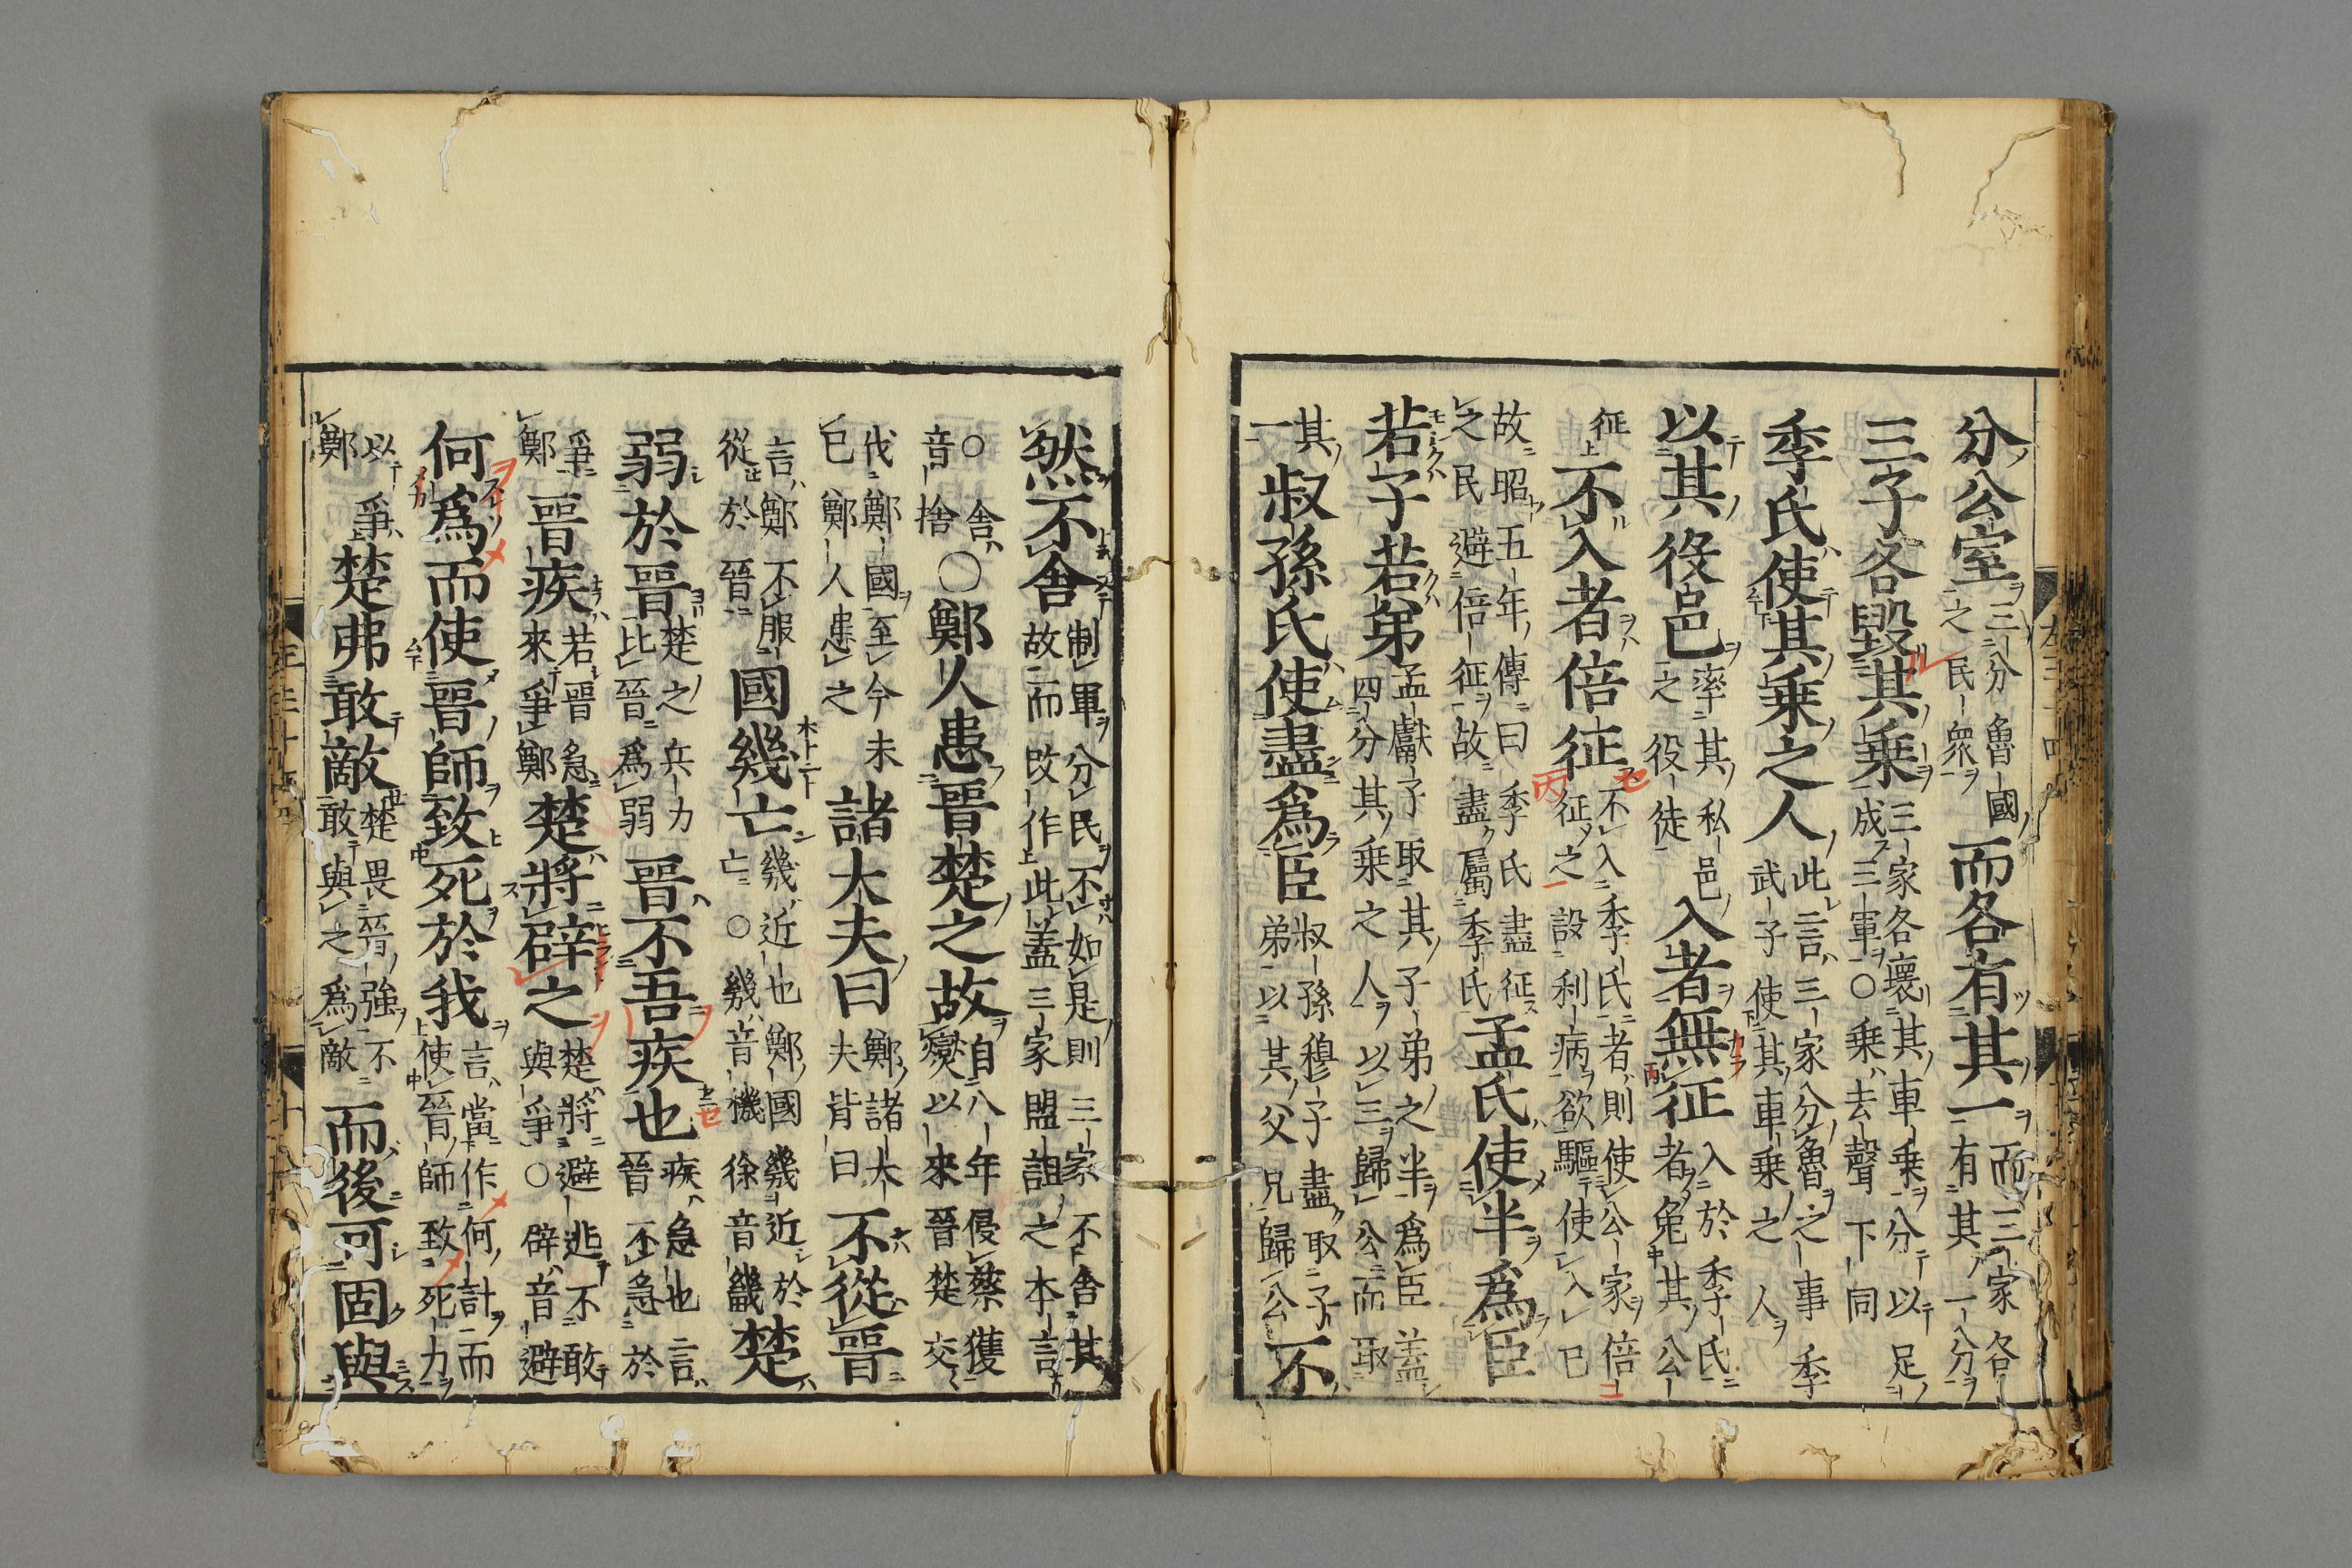 分公室三分魯國之民衆而各有其一而三家各有其一分
三子各毀其乗三家各壞其車乗分以足成三軍○乗去聲下同
季氏使其乗之人此言三家分魯之事季武子使其車乗之人
以其役邑率其私邑之役徒入者無征入於季氏者免其公
征不入者倍征不入季氏者則使公家倍征之設利病欲驅使入已
故昭五年傳曰季氏盡征之民避倍征故盡屬季氏孟氏使半爲臣
若子若弟孟獻子取其子弟之半爲臣蓋四分其乗之人以三歸公而取
其一叔孫氏使盡爲臣叔孫穆子盡取子弟以其父兄歸公不
然不舍制軍分民不如是則三家不舍其故而改作此蓋三家盟詛之本言
○舍音捨○鄭人患晉楚之故自八年侵蔡獲燮以來晉楚交
伐鄭國至今未已鄭人患之諸大夫曰鄭諸大夫皆曰不從晉
言鄭不服從於晉國幾亡幾近也鄭國幾近於亡○幾音機徐音畿楚
弱於晉楚之兵力比晉爲弱晉不吾疾也疾急也言晉不急於
爭鄭晉疾若晉急來爭鄭楚將辟之楚將避逃不敢與爭○辟音避
何爲而使晉師致死於我言當作何計而使晉師致死力
以爭鄭楚弗敢敵楚畏晉強不敢與之爲敵而後可固與